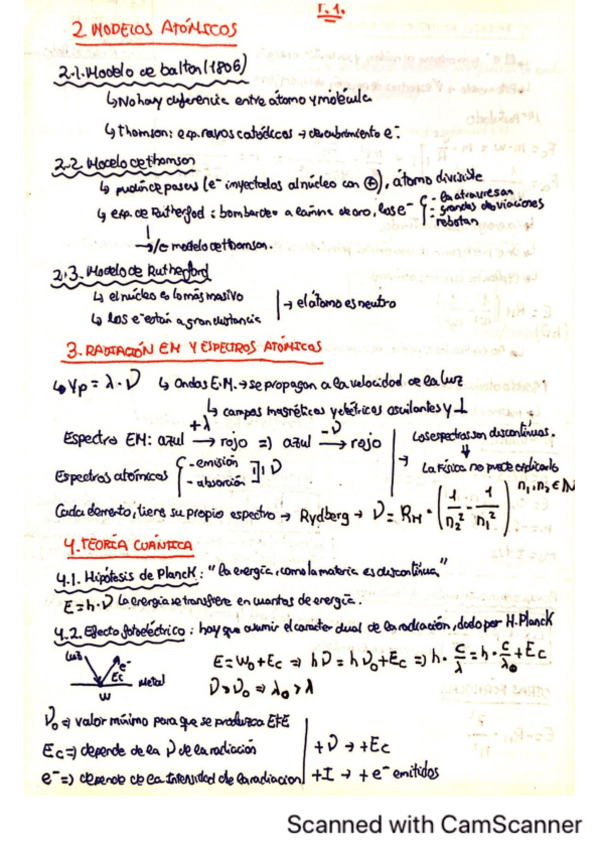 T.1.
2 MODELOS ATÓMICOS
2.1. Modelo de Dalton (1806)
↳ No hay diferencia entre átomo y molécula
↳ Thomson: exp. rayos catódicos → descubrimiento e⁻.
2.2. Modelo de thomson
↳ pudin de pasas (e⁻ inyectados al núcleo con ⊕), átomo divisible
↳ exp. de Rutherford: bombardeo a lamina de oro, los e⁻ { - la atraviesan
- grandes desviaciones
- rebotan
→ s/c modelo de thomson.
2.3. Modelo de Rutherford
↳ el núcleo es lo más masivo | → el átomo es neutro
↳ los e⁻ están a gran distancia
3. RADIACIÓN EM Y ESPECTROS ATÓMICOS
↳ Vp = λ · ν ↳ Ondas E.M. → se propagan a la velocidad de la luz
↳ campos magnéticos y eléctricos oscilantes y ⊥
Espectro EM: azul +λ→ rojo => azul -ν→ rojo | Los espectros son discontinuos.
Espectros atómicos { - emisión - absorción ] ν → La física no puede explicarlo
Cada elemento, tiene su propio espectro → Rydberg → ν = R_H · (1/n₂² - 1/n₁²) n₁, n₂ ∈ N
4. TEORÍA CUÁNTICA
4.1. Hipótesis de Planck: "la energía, como la materia es discontinua,"
E = h · ν La energía se transfiere en cuantos de energía.
4.2. Efecto fotoeléctrico: hay que asumir el carácter dual de la radiación, dado por H. Planck
luz e⁻ Ec Metal W
E = W₀ + Ec => hν = hν₀ + Ec => h · c/λ = h · c/λ₀ + Ec
ν > ν₀ => λ₀ > λ
ν₀ => valor mínimo para que se produzca EFE
Ec => depende de la ν de la radiación | +ν → +Ec
e⁻ => depende de la Intensidad de la radiación | +I → + e⁻ emitidos
Scanned with CamScanner